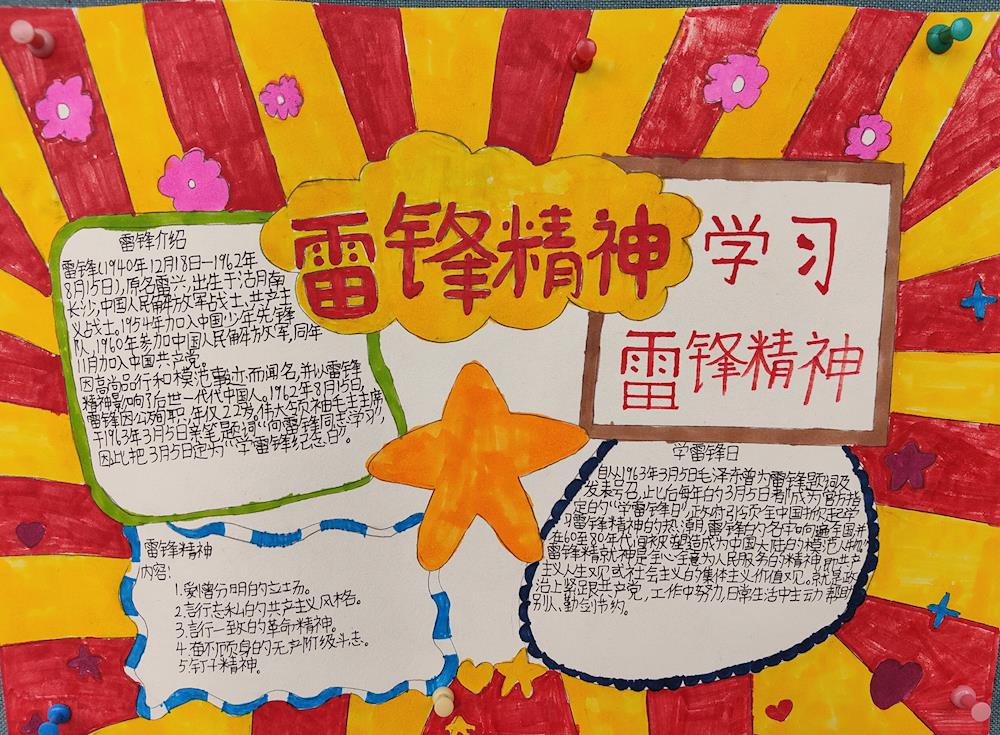 雷锋精神
学习
雷锋精神
雷锋介绍
雷锋(1940年12月18日—1962年
8月15日),原名雷兴,出生于湖南
长沙,中国人民解放军战士、共产主
义战士。1954年加入中国少年先锋
队,1960年参加中国人民解放军,同年
11月加入中国共产党。
因高尚品行和模范事迹而闻名,并以雷锋
精神影响了后世一代代中国人。1962年8月15日,
雷锋因公殉职,年仅22岁,伟大领袖毛主席
于1963年3月5日亲笔题词“向雷锋同志学习”,
因此把3月5日定为“学雷锋纪念日”。
学雷锋日
自从1963年3月5日毛泽东曾为雷锋题词及
发表号召,此后每年的3月5日都成为官方指
定的“学雷锋日”,政府引防全中国掀起学
习雷锋精神的热潮,雷锋的名字响遍全国并
在60至80年代间被塑造成为中国大陆的模范人物
雷锋精神就神是全心全意为人民服务的精神,即共产
主义人生观或社会主义的集体主义价值观。就是政
治上紧跟共产党,工作中努力,日常生活中主动帮助
别人、勤剑节约。
雷锋精神
内容:
1.爱憎分明的立土场。
2.言行忘私的共产主义风格。
3.言行一致的革命精神。
4.奋不顾身的无产阶级斗志。
5.钉子精神。